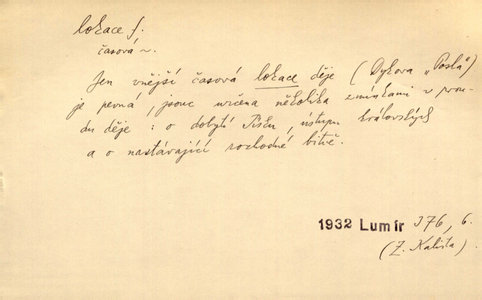 lokace f.
časová ~.
Jen vnější časová lokace děje (Dykova „Posla")
je pevná, jsouc určena několika zmínkami v prou-
du děje: o dobytí Písku, ústupu královských
a o nastávající rozhodné bitvě.
1932 Lumír 376, 6.
(Z. Kalista).